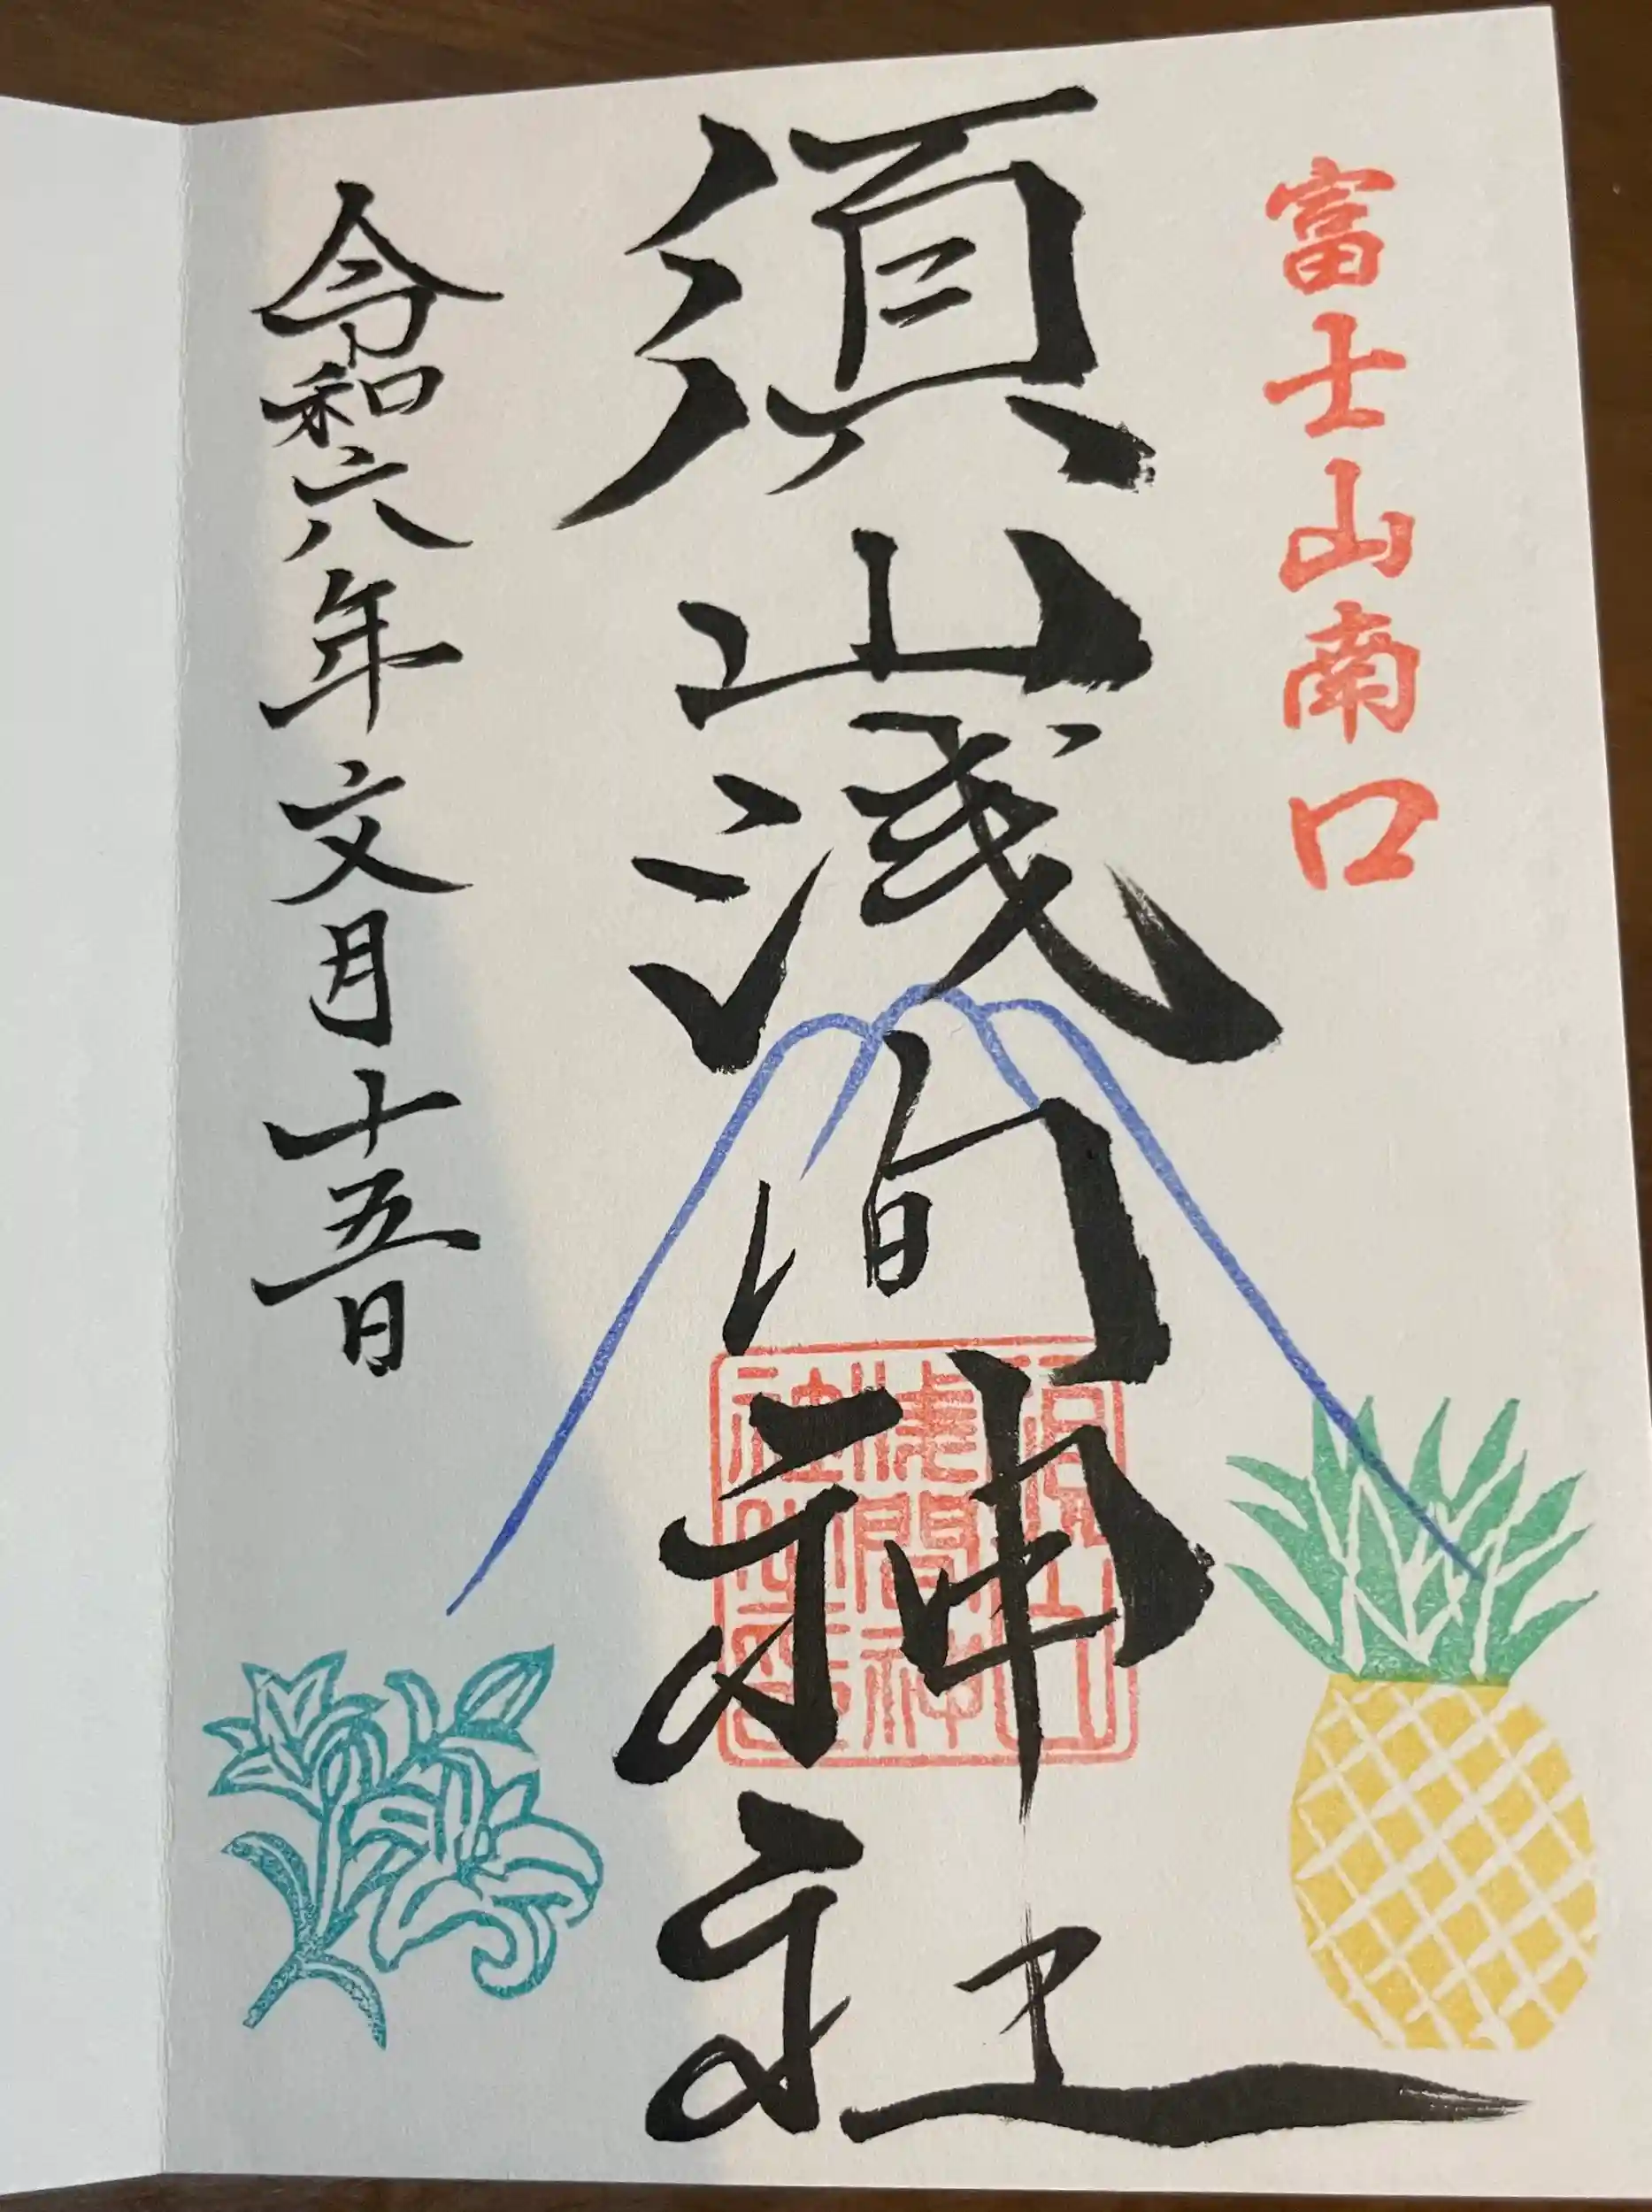 富士山南口
須山浅間神社
須山浅間神社之印
令和六年文月十五日